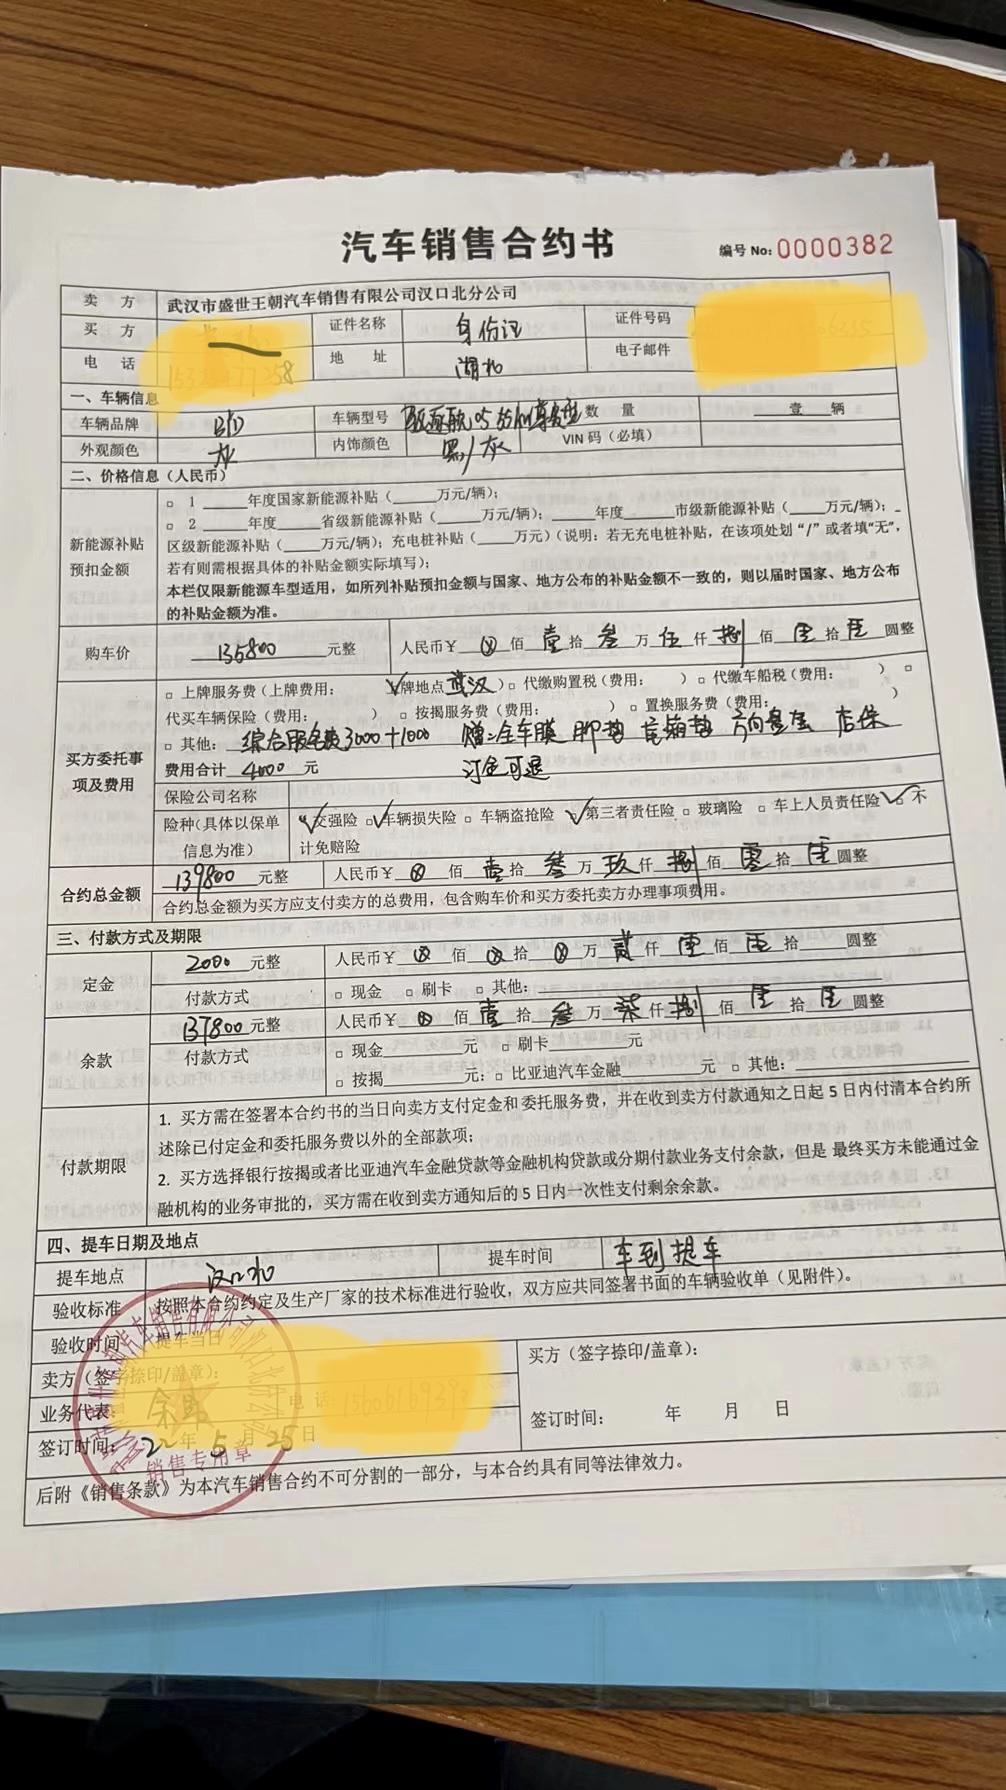 汽车销售合约书
编号 No: 0000382
卖 方 武汉市盛世王朝汽车销售有限公司汉口北分公司
买 方 证件名称 身份证 证件号码
电 话 地 址 湖北 电子邮件
一、车辆信息
车辆品牌 BYD 车辆型号 55km尊贵型 数 量 壹 辆
外观颜色 灰 内饰颜色 黑/灰 VIN 码（必填）
二、价格信息（人民币）
新能源补贴预扣金额
□ 1 ____年度国家新能源补贴（____万元/辆）；
□ 2 ____年度____省级新能源补贴（____万元/辆）；____年度____市级新能源补贴（____万元/辆）；_
区级新能源补贴（____万元/辆）；充电桩补贴（____万元）（说明：若无充电桩补贴，在该项处划“/”或者填“无”，
若有则需根据具体的补贴金额实际填写）；
本栏仅限新能源车型适用，如所列补贴预扣金额与国家、地方公布的补贴金额不一致的，则以届时国家、地方公布
的补贴金额为准。
购车价 135800 元整 人民币￥ ⊗ 佰 壹 拾 叁 万 伍 仟 捌 佰 零 拾 零 圆整
买方委托事项及费用
□ 上牌服务费（上牌费用： ✓牌地点 武汉）□ 代缴购置税（费用： ）□ 代缴车船税（费用： ）□
代买车辆保险（费用： ）□ 按揭服务费（费用： ）□ 置换服务费（费用： ）
□ 其他：综合服务费3000+1000 赠：全车膜 脚垫 后备箱垫 方向盘套 店保
费用合计 4000 元 订金可退
保险公司名称
险种（具体以保单信息为准） ✓交强险 □✓车辆损失险 □ 车辆盗抢险 ✓第三者责任险 □ 玻璃险 □ 车上人员责任险 ✓□ 不
计免赔险
合约总金额 139800 元整 人民币￥ ⊗ 佰 壹 拾 叁 万 玖 仟 捌 佰 零 拾 零 圆整
合约总金额为买方应支付卖方的总费用，包含购车价和买方委托卖方办理事项费用。
三、付款方式及期限
定金 2000 元整 人民币￥ ⊗ 佰 ⊗ 拾 ⊗ 万 贰 仟 零 佰 零 拾 ____圆整
付款方式 □ 现金 □ 刷卡 □ 其他：
余款 137800 元整 人民币￥ ⊗ 佰 壹 拾 叁 万 柒 仟 捌 佰 零 拾 零 圆整
付款方式 □ 现金____元 □ 刷卡____元
□ 按揭____元； □ 比亚迪汽车金融____元 □ 其他：
付款期限
1. 买方需在签署本合约书的当日向卖方支付定金和委托服务费，并在收到卖方付款通知之日起 5 日内付清本合约所
述除已付定金和委托服务费以外的全部款项；
2. 买方选择银行按揭或者比亚迪汽车金融贷款等金融机构贷款或分期付款业务支付余款，但是 最终买方未能通过金
融机构的业务审批的，买方需在收到卖方通知后的 5 日内一次性支付剩余余款。
四、提车日期及地点
提车地点 汉口北 提车时间 车到提车
验收标准 按照本合约约定及生产厂家的技术标准进行验收，双方应共同签署书面的车辆验收单（见附件）。
验收时间 提车当日
卖方（签字捺印/盖章）： 买方（签字捺印/盖章）：
业务代表： 电 话
签订时间：22 年 5 月 25 日 签订时间： 年 月 日
销售专用章
后附《销售条款》为本汽车销售合约不可分割的一部分，与本合约具有同等法律效力。